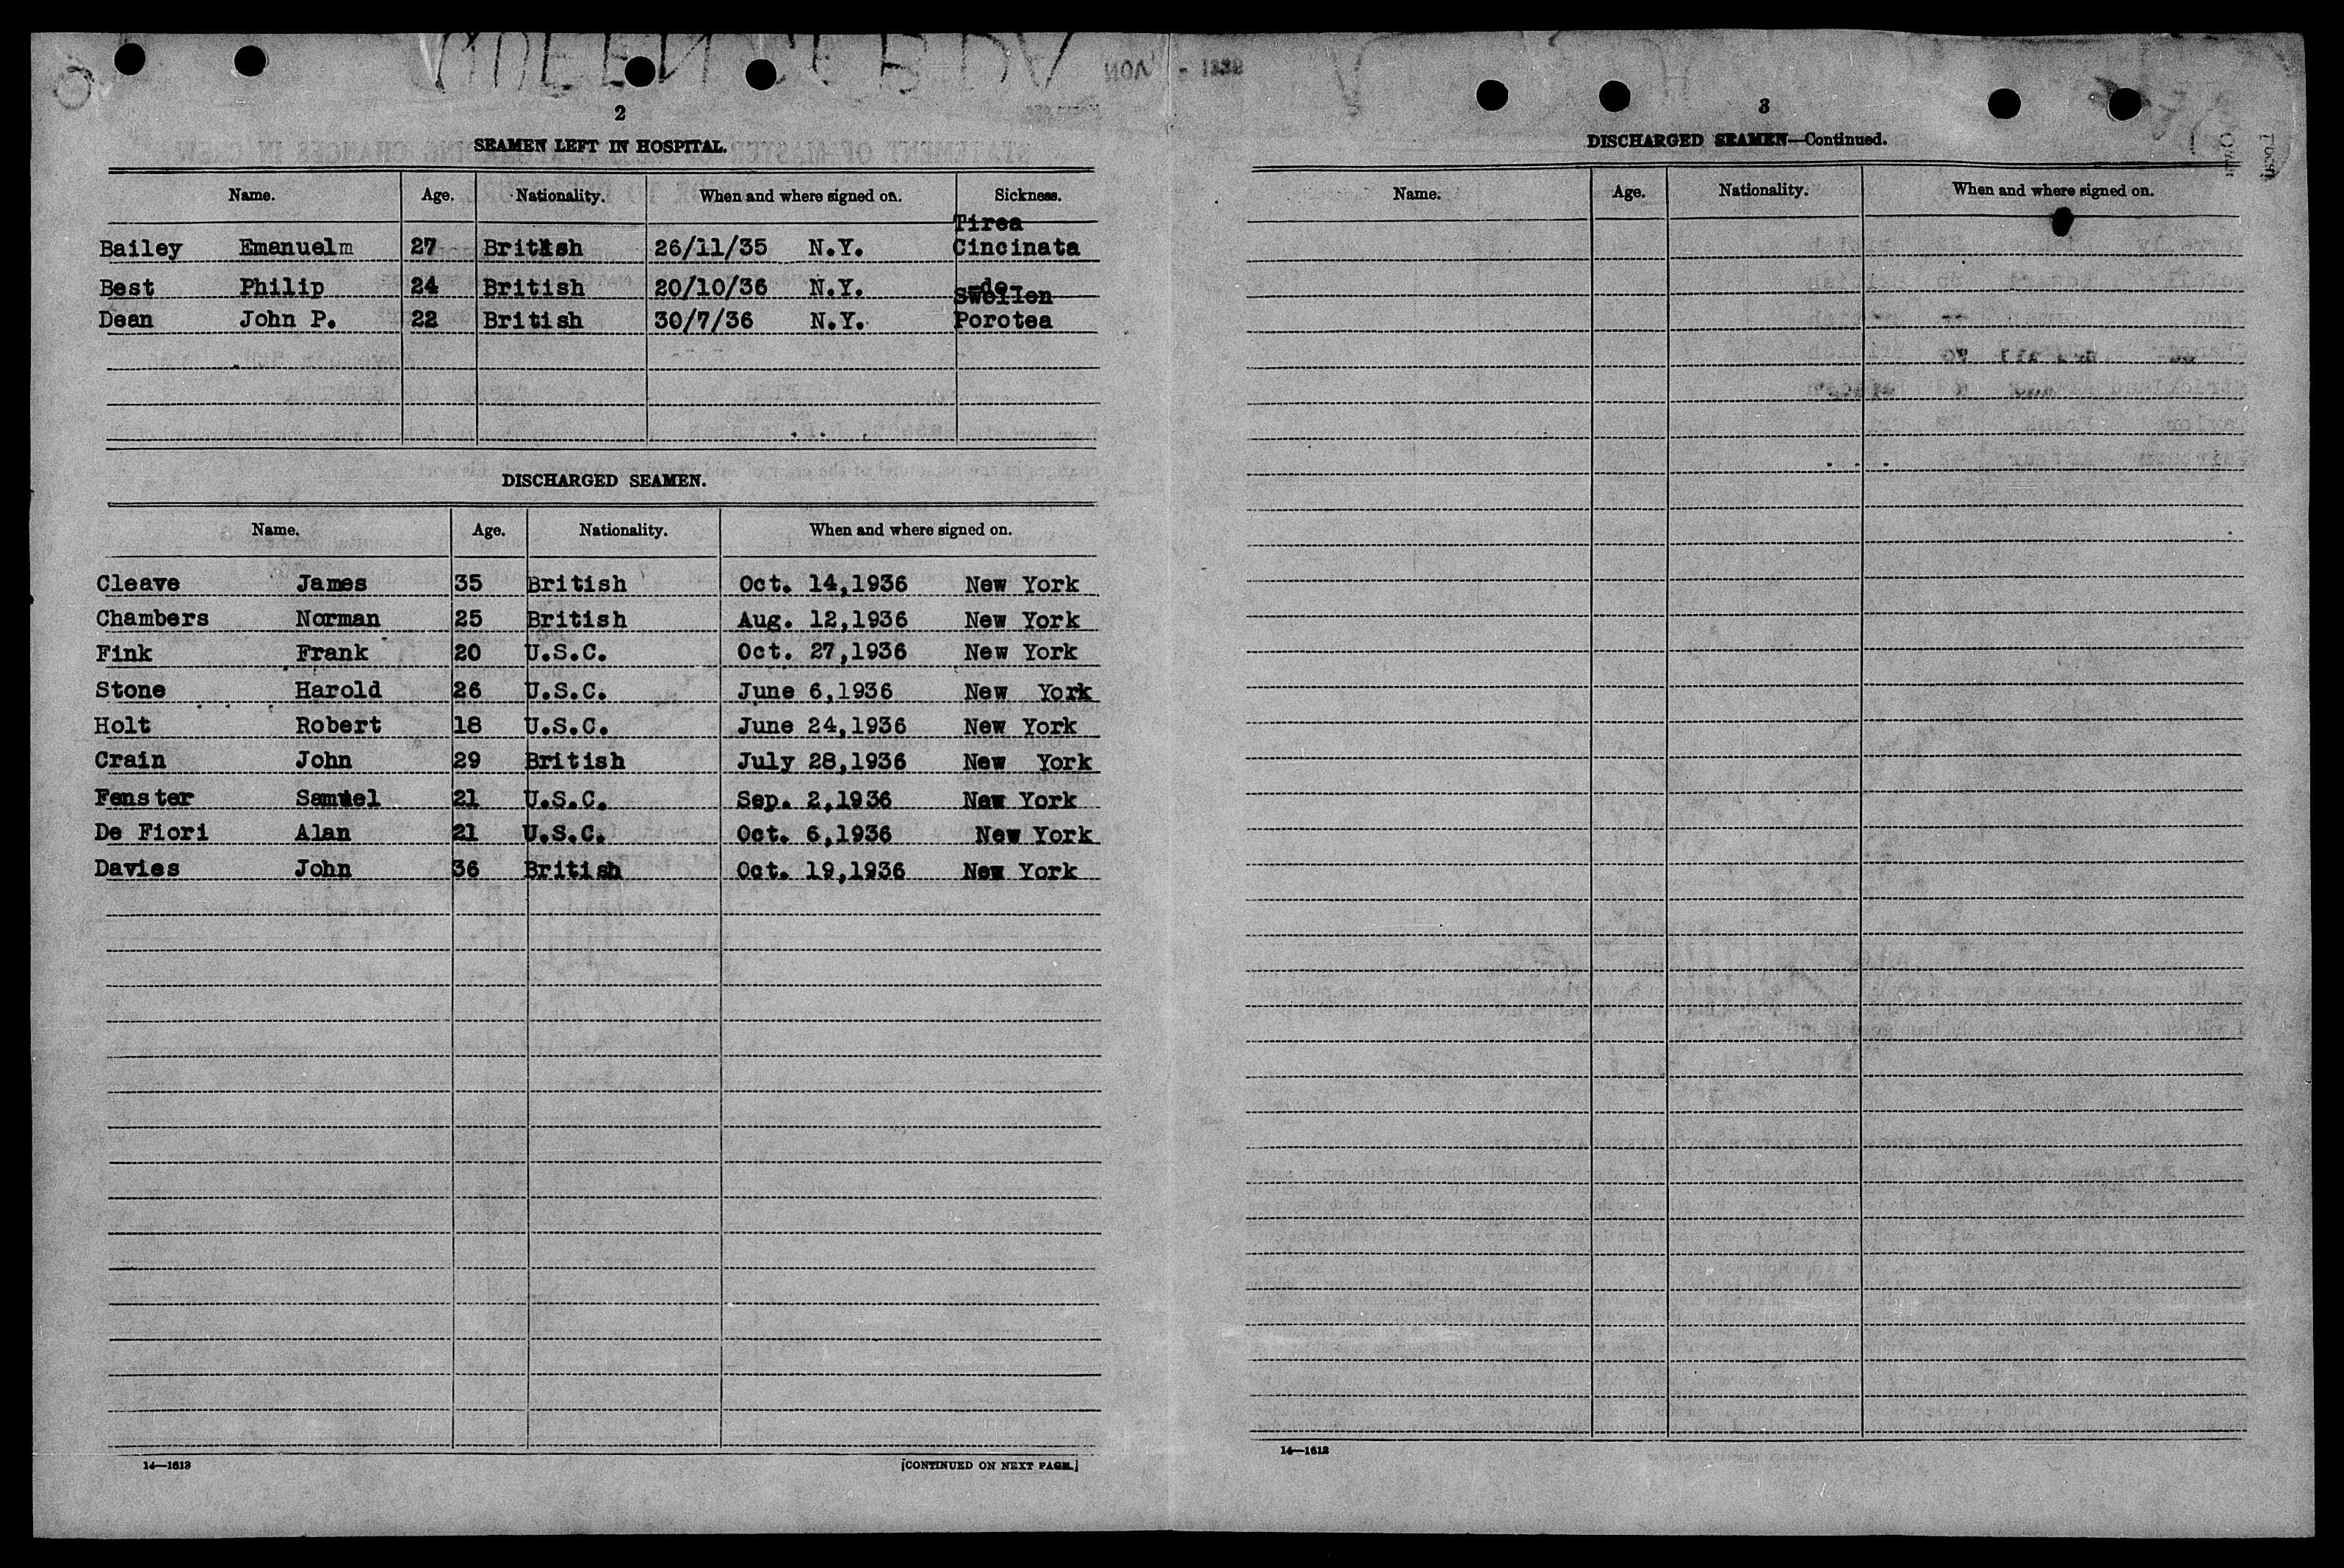 QUEEN OF BERMUDA
2
SEAMEN LEFT IN HOSPITAL.
Name. Age. Nationality. When and where signed on. Sickness.
Tirea
Bailey Emanuelm 27 British 26/11/35 N.Y. Cincinata
Best Philip 24 British 20/10/36 N.Y. -do-
Swollen
Dean John P. 22 British 30/7/36 N.Y. Porotea
DISCHARGED SEAMEN.
Name. Age. Nationality. When and where signed on.
Cleave James 35 British Oct. 14,1936 New York
Chambers Norman 25 British Aug. 12,1936 New York
Fink Frank 20 U.S.C. Oct. 27,1936 New York
Stone Harold 26 U.S.C. June 6,1936 New York
Holt Robert 18 U.S.C. June 24,1936 New York
Crain John 29 British July 28,1936 New York
Fenster Samuel 21 U.S.C. Sep. 2,1936 New York
De Fiori Alan 21 U.S.C. Oct. 6,1936 New York
Davies John 36 British Oct. 19,1936 New York
14—1613
[CONTINUED ON NEXT PAGE.]
3
DISCHARGED SEAMEN—Continued.
Name. Age. Nationality. When and where signed on.
14—1613